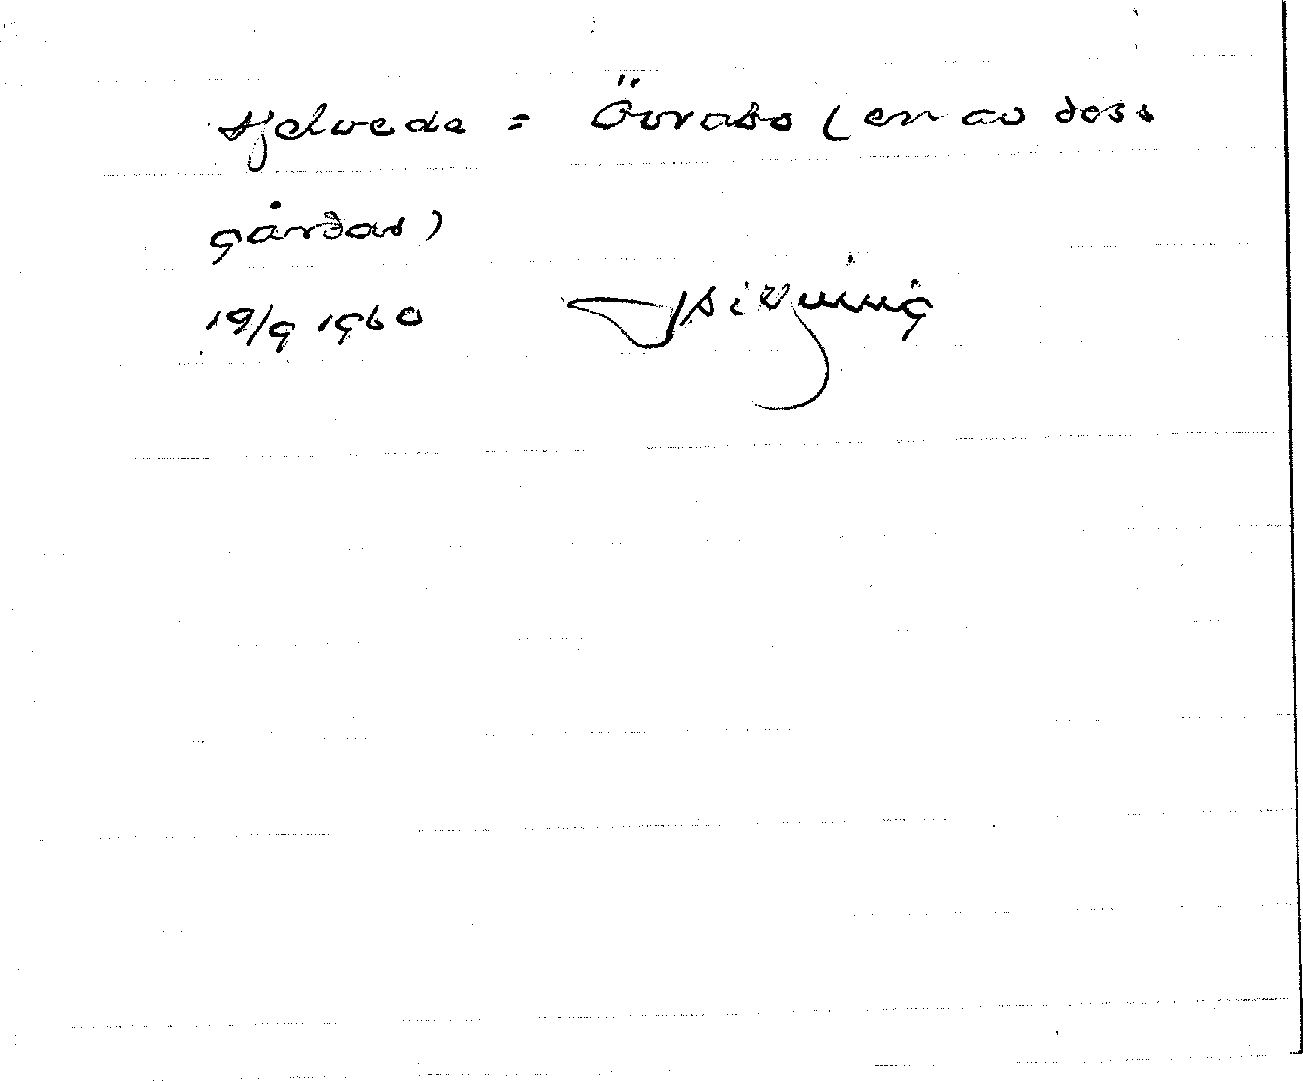 sjelveda = Övrabo (en av dess
gårdar)
19/9 1960